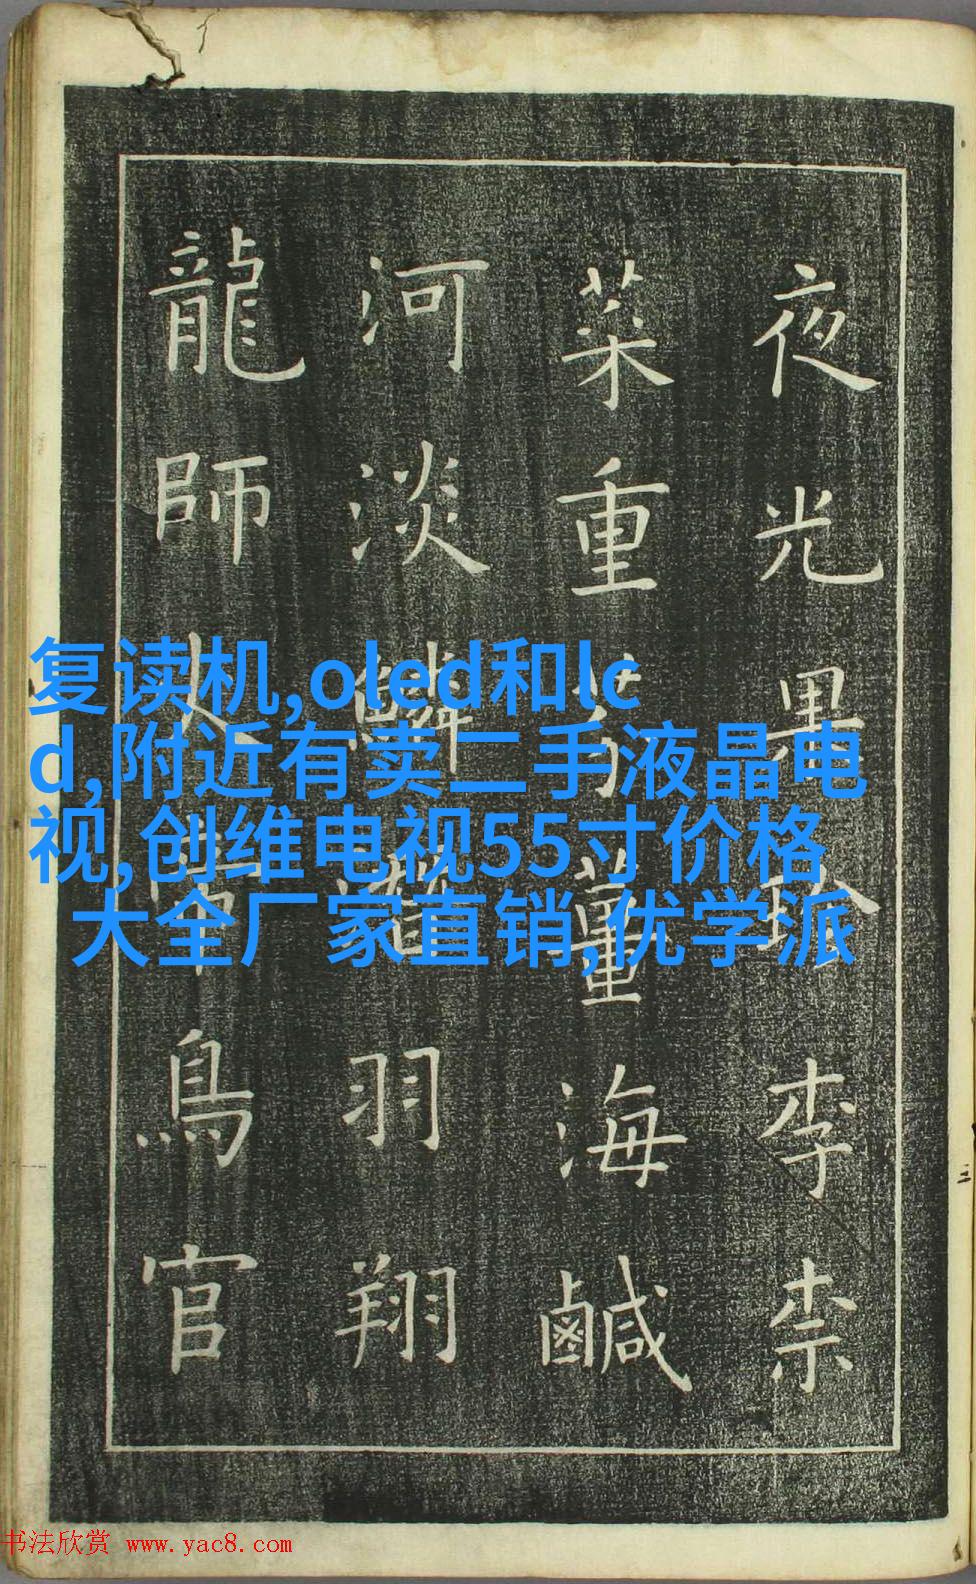 夜光果珍李柰
菜重芥薑海鹹
河淡鱗潛羽翔
龍師火帝鳥官
复读机,oled和lc
d,附近有卖二手液晶电
视,创维电视55寸价格
大全厂家直销,优学派
书法欣赏 www.yac8.com